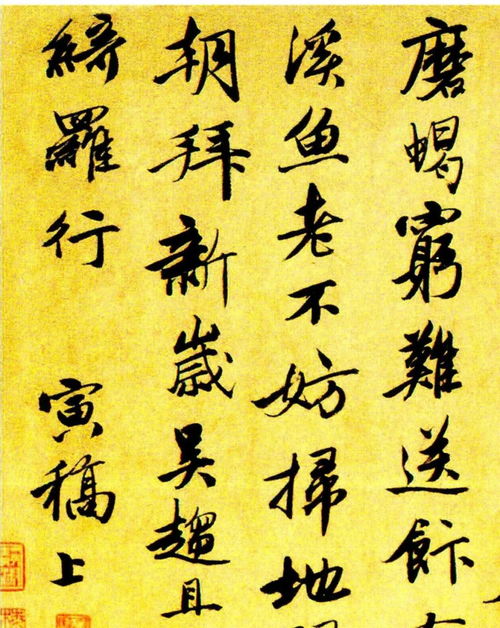 磨蝎窮難送飰
溪魚老不妨掃地
朝拜新歲吴趨且
綺羅行 寅稿上